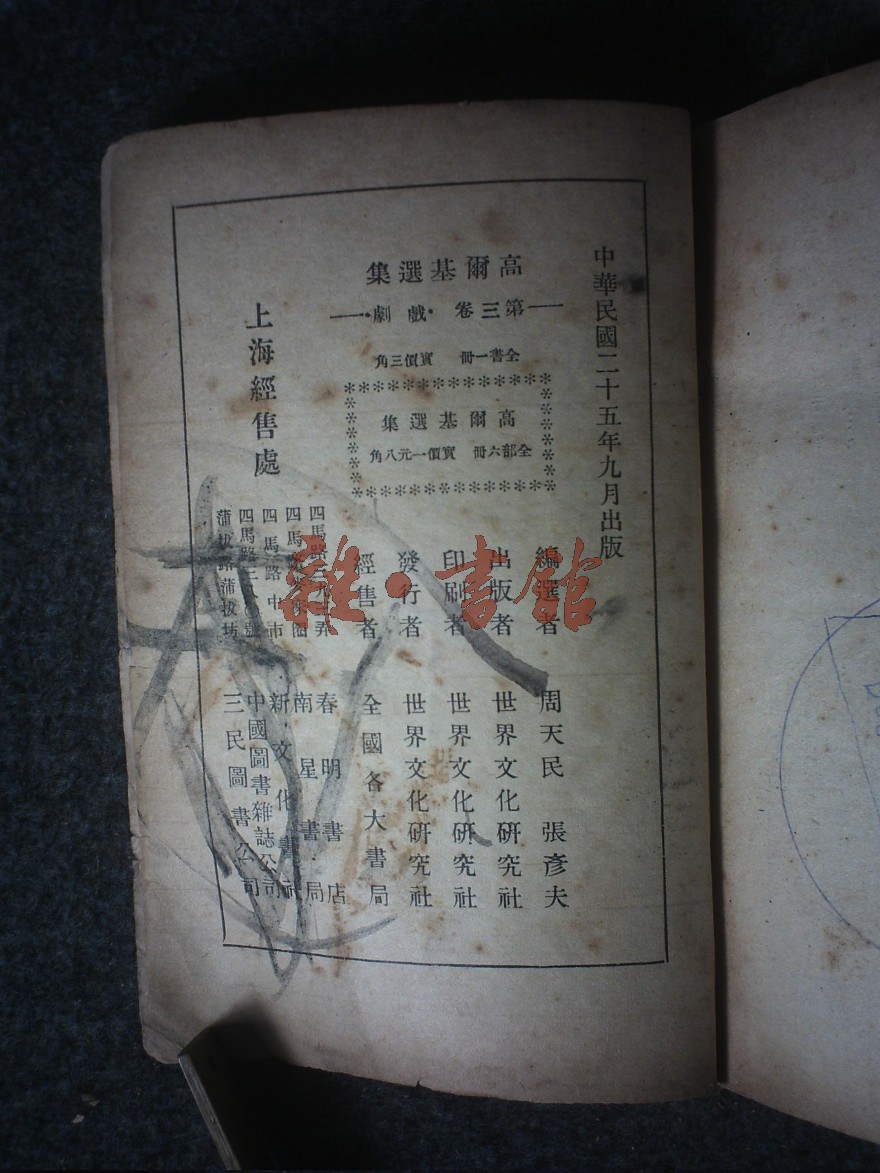 中華民國二十五年九月出版
高爾基選集
第三卷·戲劇
全書一冊 實價三角
高爾基選集
全部六冊 實價一元八角
編選者 周天民 張彥夫
出版者 世界文化研究社
印刷者 世界文化研究社
發行者 世界文化研究社
經售者 全國各大書局
上海經售處
四馬路 春明書店
四馬路 南星書局
四馬路中市 新文化書社
四馬路三 號 中國圖書雜誌公司
蒲拔路蒲拔坊 三民圖書公司
雜·書館